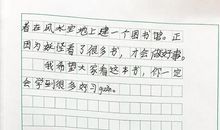 着在风水宝地上建一个图书馆。正
因为妖怪看了很多书，才会做好事。
我希望大家看这本书，你一定
会学到很多好习